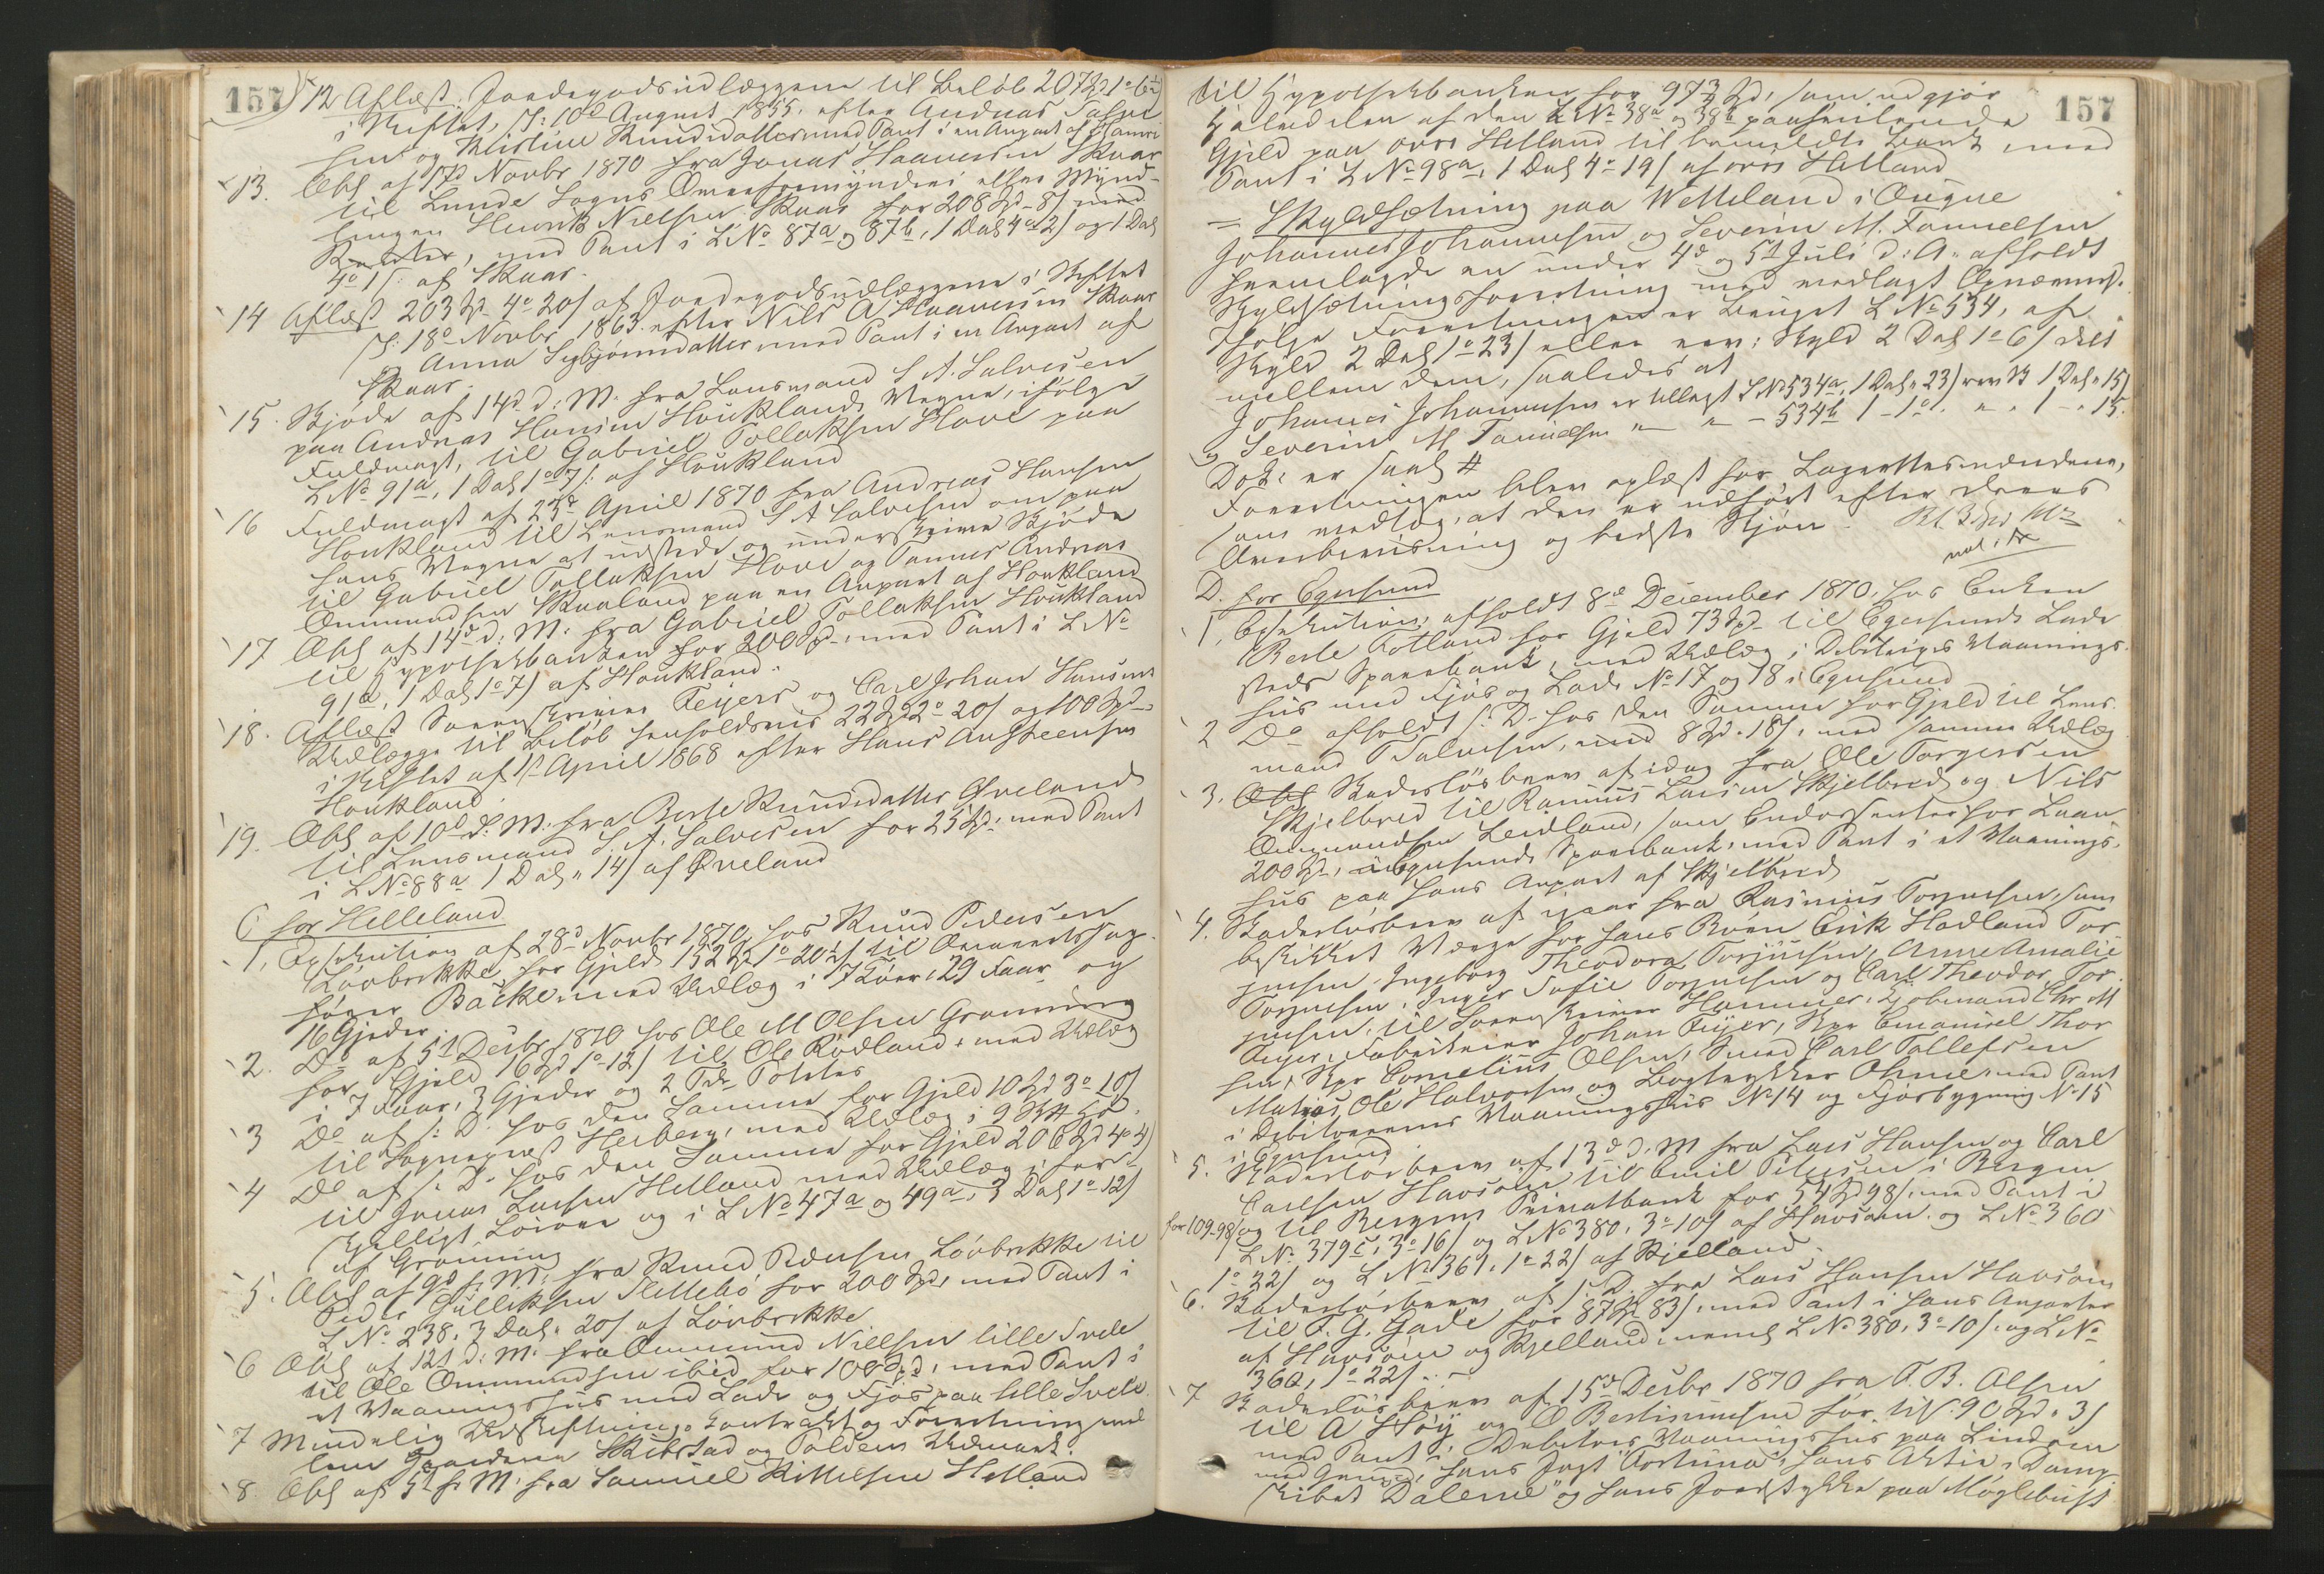 157
12 Aflæst. Jordegodsudlæggene til Beløb 207 Spd 1o 6
i Skiftet, S: 10d August 1855. efter Andreas
sen og Kirstine Knudsdatter med Pant i en Anpart af
13. Obl af 17d Novbr 1870 fra Jonas Haavesen Skaar
til Lunde Sogns Overformynderi eller Mynd-
lingen Henrik Nielsen Skaar for 208 Spd - 8/ med
Renter, med Pant i L No 87a og 87b, 1 Dal 4o 2/ og 1 Dal
4o 1/: af Skaar.
14 Aflæst 203 Spd 4o 20/ af Jordegodsudlæggene i Skiftet
S: 18d Novbr 1863. efter Nils A Haavesen Skaar
og Anna Sigbjørnsdatter med Pant i en Anpart af
Skaar.
15. Skjøde af 14d d. M. fra Lensmand S A. Salvesen
paa Andreas Hansen Houklands Vegne, ifølge
Fuldmagt, til Gabriel Tollaksen Hove paa
L No 91a, 1 Dal 1o 7/: af Houkland
16 Fuldmagt af 23d April 1870 fra Andreas Hansen
Houkland til Lensmand S A Salvesen om paa
hans Vegne at udstede og underskrive Skjøde
til Gabriel Tollaksen Hove og Tønnes Andreas
Ommundsen Skaaland paa en Anpart af Houkland
17 Obl af 14d d: M: fra Gabriel Tollaksen Houkland
til Hypothekbanken for 200 Spd: med Pant i L No
91a, 1 Dal 1o 7/ af Houkland.
18. Aflæst Sorenskriver Feyers og Carl Johan Hansens
Udlægge til Beløb henholdsvis 22 Spd 2o 20/ og 100 Spd
i Skiftet af 1st April 1868 efter Hans Augsteensen
Houkland.
19. Obl af 10d d: M. fra Berte Knudsdatter Qveland
til Lensmand S. A. Salvesen for 25 Spd: med Pant
i L No 88a 1 Dal " 14/ af Qveland
C for Helleland
1, Exekution af 28d Novbr 1870, hos Knud Pedersen
Løvbrekke, for Gjeld 152 Spd 1o 20 1/2/ til Overretssag-
fører Bäcke, med Udlæg i 7 Køer, 29 Faar og
16 Gjeder.
2. Do af 5t Decbr 1870 hos Ole M Olsen Grøning
for Gjeld 16 Spd 1o 12/ til Ole Rødland, med Udlæg
i 7 Faar, 3 Gjeder og 2 Tdr Poteter
3 Do af s: D. hos den Samme for Gjeld 10 Spd 3o 10/
til Sogneprest Herberg, med Udlæg i 9 St
4 Do af s: D. hos den Samme for Gjeld 206 Spd 4o 4/
til Jonas Larsen Helland med Udlæg i for-
skjelligt Løsøre og i L No 47a og 49a, 3 Dal 1o 12/
af Grøning
5. Obl af 9d f. M: fra Knud Pedersen Løvbrekke til
Peder Gulliksen Slettebø for 200 Spd, med Pant i
L No 238, 3 Dal " 20/ af Løvbrekke
6 Obl af 12t d: M. fra Ommund Nielsen lille Svele
til Ole Ommundsen ibid for 100 Spd, med Pant i
et Vaaningshus med Lade og Fjøs paa lille Svele.
7 Mindelig Udskiftnings Kontrakt og Forretning mel
lem Gaardene Skibstad og Toldens Udmark.
8. Obl af 5t f. M. fra Samuel Kittelsen Helland
157
til Hypothekbanken for 97 1/2 Spd, som udgjør
Halvdelen af den L No 38a og 38b paahvilende
Gjeld paa ovrs Helland til bemeldte Bank, med
Pant i L No 98a, 1 Dal 4o 19/ af ovrs Helland
= Skyldsætning paa Wetteland i Ougne
Johannes Johannesen og Severin M. Tønnesen
fremlagde en under 4d og 5t Juli d: A. afholdt
Skyldsætningsforretning med vedlagt Opnævnelse.
Ifølge Forretningen er Bruget L No 534, af
Skyld 2 Dal 1o 23/ eller rev: Skyld 2 Dal 1o 6/ delt
mellem dem, saaledes at
Johannes Johannesen er tillagt L No 534a, 1 Dal " 23/ rev Sk 1 Dal " 15/
og Severin M Tønnesen " " - 534b 1 - 1o " " " 1 - " 15.
Dok: er saal #
Forretningen blev oplæst for Lagrettesmændene,
som vedtog, at den er udført efter deres
Overbevisning og bedste Skjøn.
D. for Egersund
1, Exekution, afholdt 8d December 1870, hos Enken
Berte Fotland for Gjeld 73 Spd til Egersunds Lade
steds Sparebank, med Udlæg i Debitrixes Vaanings
hus med Fjøs og Lade No 17 og 18 i Egersund
2 Do afholdt s: D. hos den Samme for Gjeld til Lens
mand Salvesen, med 8 Spd " 18/, med samme Udlæg
3. Obl Skadesløsbrev af idag fra Ole Torgersen
Skjelbred til Rasmus Larsen Skjelbred og Nils
Ommundsen Leidland, som Endossenter for Laan
200 Spd, i Egersunds Sparebank, med Pant i et Vaanings-
hus paa hans Anpart af Skjelbred
4. Skadesløsbrev af igaar fra Rasmus Torjusen, som
beskikket Værge for hans Børn Erik Hadland Tor
jusen, Ingeborg Theodora Torjusen, Anne Amalie
Torjusen, Inger Sofie Torjusen og Carl Theodor Tor
jusen, til Sorenskriver Hammer, Kjøbmand Chr M
Feyer, Fabrikeier Johan Feyer, Skpr Emanuel Thor
sen, Skpr Cornelius Olsen, Smed Carl Tollefsen
Matias, Ole Halvorsen og Bogtrykker Ohme, med Pant
i Debitorernes Vaaningshus No 14 og Fjøsbygning No 15
i Egersund
5. Skadesløsbrev af 13d d. M fra Lars Hansen og Carl
Carlsen Havsøen til Emil Petersen i Bergen
for 109-98/ og til Bergens Privatbank for 54 Spd 98/, med Pant i
L No 379c, 3o 16/ og L No 380, 3o 10/ af Havsøen og L No 360
1o 22/ og L No 361, 1o 22/ af Kjelland.
6. Skadesløsbrev af s: D. fra Lars Hansen Havsøen
til F. G. Gade for 87 Spd 83/, med Pant i hans Anparter
af Havsøen og Kjelland, neml L No 380, 3o 10/, og L No
360, 1o 22/.
7 Skadesløsbrev af 15d Decbr 1870 fra T. B. Olsen
til A Høy og O Bertinussen for tils. 90 Spd " 3/
med Pant i Debitors Vaaningshus paa Lindøen
med Grund, hans Jagt "Fortuna", hans Aktie i Damp
skibet "Dalerne" og hans Jordstykke paa Møglebust